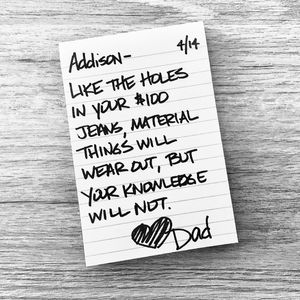 Addison- 4/14
LIKE THE HOLES
IN YOUR $100
JEANS, MATERIAL
THINGS WILL
WEAR OUT, BUT
YOUR KNOWLEDGE
WILL NOT.
Dad